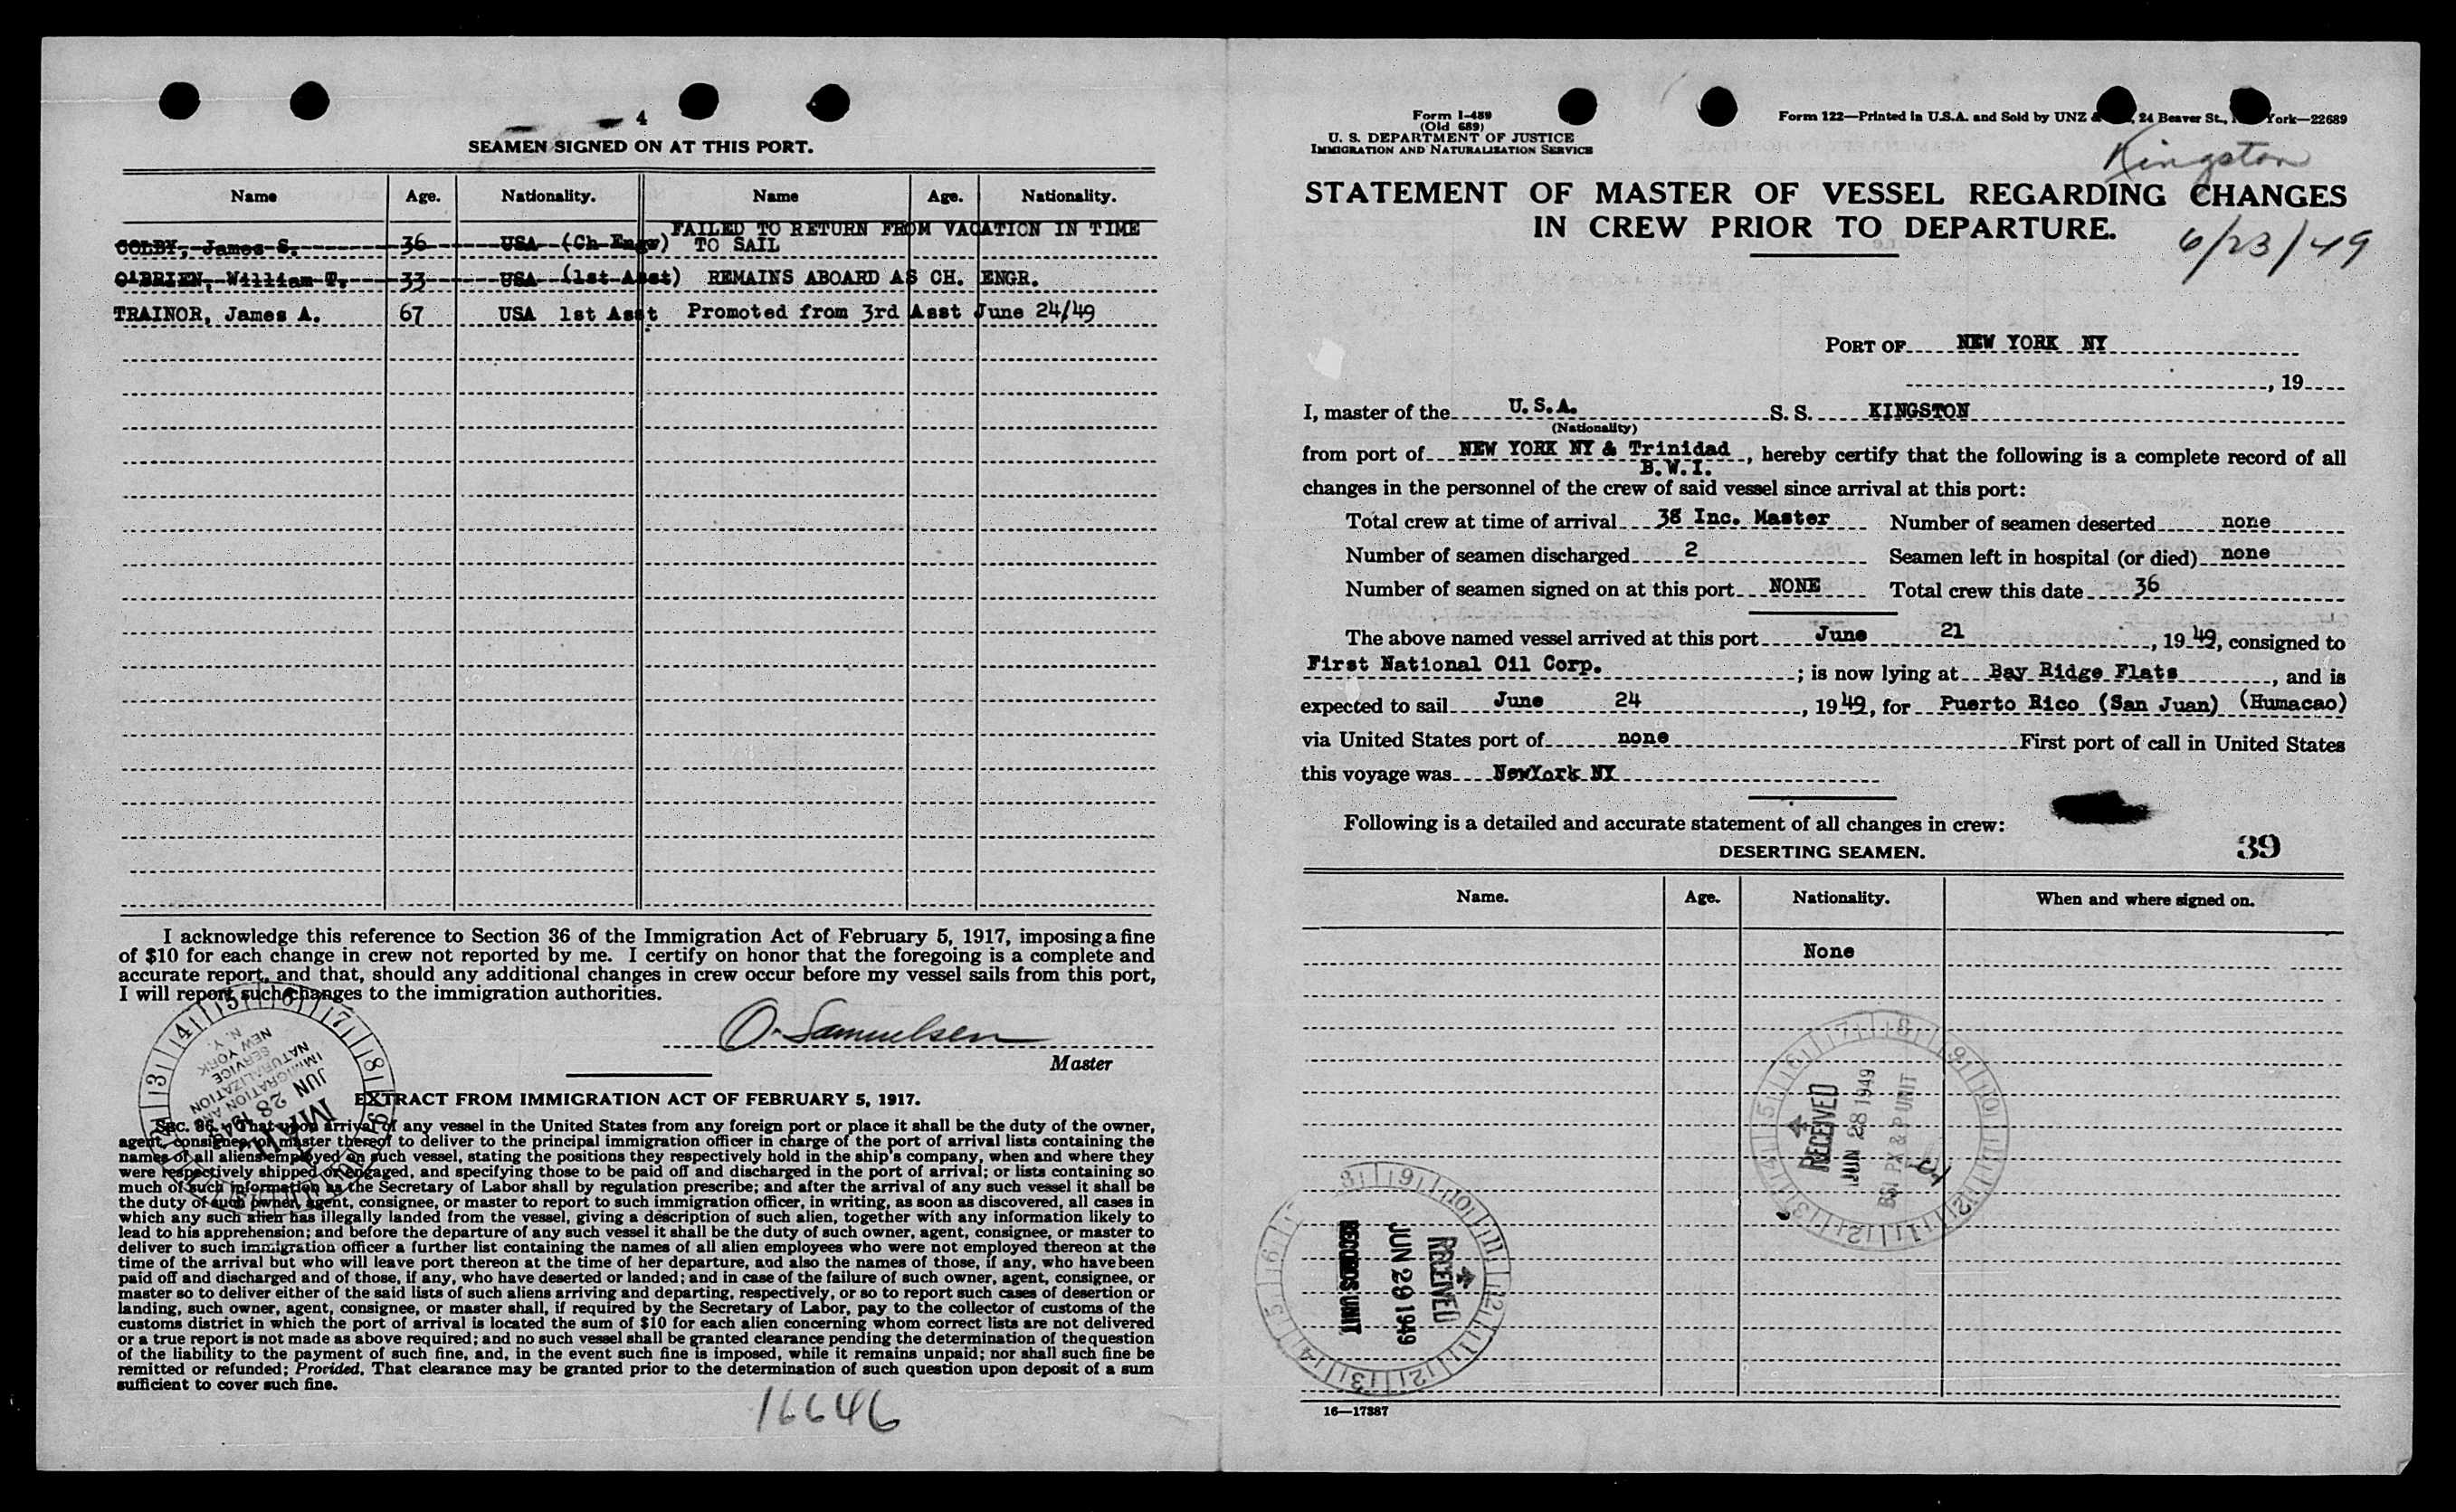 4
SEAMEN SIGNED ON AT THIS PORT.
Name Age. Nationality. Name Age. Nationality.
FAILED TO RETURN FROM VACATION IN TIME
COLBY, James S. 36 USA (Ch Engr) TO SAIL
O'BRIEN, William T. 33 USA (1st Asst) REMAINS ABOARD AS CH. ENGR.
TRAINOR, James A. 67 USA 1st Asst Promoted from 3rd Asst June 24/49
I acknowledge this reference to Section 36 of the Immigration Act of February 5, 1917, imposing a fine
of $10 for each change in crew not reported by me. I certify on honor that the foregoing is a complete and
accurate report, and that, should any additional changes in crew occur before my vessel sails from this port,
I will report such changes to the immigration authorities.
O. Samuelsen
Master
IMMIGRATION AND
NATURALIZATION
SERVICE
NEW YORK
N. Y.
JUN 28
EXTRACT FROM IMMIGRATION ACT OF FEBRUARY 5, 1917.
Sec. 36. That upon arrival of any vessel in the United States from any foreign port or place it shall be the duty of the owner,
agent, consignee, or master thereof to deliver to the principal immigration officer in charge of the port of arrival lists containing the
names of all aliens employed on such vessel, stating the positions they respectively hold in the ship's company, when and where they
were respectively shipped or engaged, and specifying those to be paid off and discharged in the port of arrival; or lists containing so
much of such information as the Secretary of Labor shall by regulation prescribe; and after the arrival of any such vessel it shall be
the duty of such owner, agent, consignee, or master to report to such immigration officer, in writing, as soon as discovered, all cases in
which any such alien has illegally landed from the vessel, giving a description of such alien, together with any information likely to
lead to his apprehension; and before the departure of any such vessel it shall be the duty of such owner, agent, consignee, or master to
deliver to such immigration officer a further list containing the names of all alien employees who were not employed thereon at the
time of the arrival but who will leave port thereon at the time of her departure, and also the names of those, if any, who have been
paid off and discharged and of those, if any, who have deserted or landed; and in case of the failure of such owner, agent, consignee, or
master so to deliver either of the said lists of such aliens arriving and departing, respectively, or so to report such cases of desertion or
landing, such owner, agent, consignee, or master shall, if required by the Secretary of Labor, pay to the collector of customs of the
customs district in which the port of arrival is located the sum of $10 for each alien concerning whom correct lists are not delivered
or a true report is not made as above required; and no such vessel shall be granted clearance pending the determination of the question
of the liability to the payment of such fine, and, in the event such fine is imposed, while it remains unpaid; nor shall such fine be
remitted or refunded; Provided, That clearance may be granted prior to the determination of such question upon deposit of a sum
sufficient to cover such fine.
16646
Form I-489
(Old 689)
U. S. DEPARTMENT OF JUSTICE
IMMIGRATION AND NATURALIZATION SERVICE
Form 122—Printed in U.S.A. and Sold by UNZ &, 24 Beaver St., York—22689
Kingston
STATEMENT OF MASTER OF VESSEL REGARDING CHANGES
IN CREW PRIOR TO DEPARTURE.
6/23/49
PORT OF NEW YORK NY
, 19
I, master of the U.S.A. S. S. KINGSTON
(Nationality)
from port of NEW YORK NY & Trinidad B.W.I., hereby certify that the following is a complete record of all
changes in the personnel of the crew of said vessel since arrival at this port:
Total crew at time of arrival 38 Inc. Master Number of seamen deserted none
Number of seamen discharged 2 Seamen left in hospital (or died) none
Number of seamen signed on at this port NONE Total crew this date 36
The above named vessel arrived at this port June 21, 1949, consigned to
First National Oil Corp.; is now lying at Bay Ridge Flats, and is
expected to sail June 24, 1949, for Puerto Rico (San Juan) (Humacao)
via United States port of none First port of call in United States
this voyage was NewYork NY
Following is a detailed and accurate statement of all changes in crew:
39
DESERTING SEAMEN.
Name. Age. Nationality. When and where signed on.
None
RECEIVED
JUN 28 1949
BSI PX & P UNIT
RECEIVED
JUN 29 1949
RECORDS UNIT
16—17387